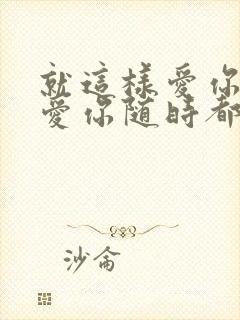 就這樣愛你
愛你随時都
沙侖